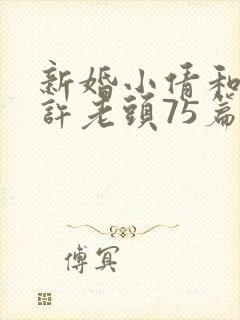 新婚小倩和
許老頭75篇
傅冥